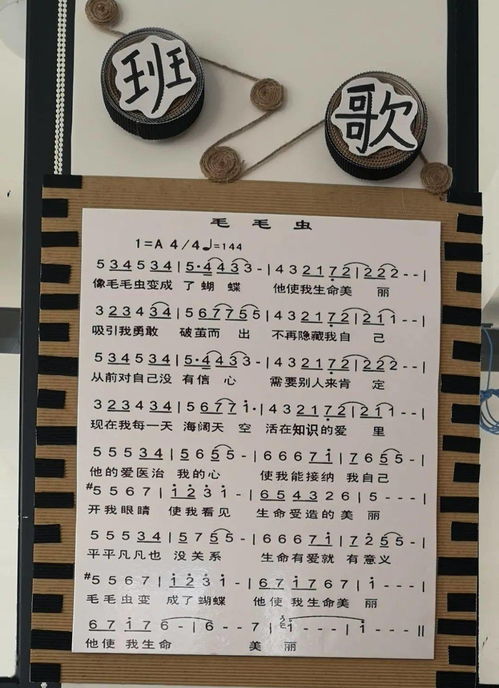 班歌
毛毛虫
1=A 4/4 ♩=144
5 3 4 5 3 4 | 5 · 4 4 3 3 - | 4 3 2 1 7 2 | 2 2 2 - - |
像毛毛虫变成 了 蝴 蝶 他使我生命美 丽
3 2 3 4 3 4 | 5 6 7 7 5 5 | 4 3 2 1 7 2 | 2 1 1 - - |
吸引我勇敢 破茧而 出 不再隐藏我自 己
5 3 4 5 3 4 | 5 · 4 4 3 3 - | 4 3 2 1 7 2 | 2 2 2 - - |
从前对自己没 有信 心 需要别人来肯 定
3 2 3 4 3 4 | 5 6 7 7 1 · | 4 3 2 1 7 2 | 2 1 1 - - |
现在我每一天 海阔天 空 活在知识的爱 里
5 5 5 3 4 | 5 6 5 5 - | 6 6 6 7 1 | 7 6 5 5 - |
他的爱医治 我的心 使我能接纳 我自己
#5 5 6 7 | 1 2 3 1 - | 6 5 4 3 2 6 | 5 - - - |
开我眼睛 使我看见 生命受造的美 丽
5 5 5 3 4 | 5 7 5 5 - | 6 6 6 7 1 | 7 2 5 5 - |
平平凡凡也 没关系 生命有爱就 有意义
#5 5 6 7 | 1 2 3 1 - | 6 7 1 7 6 7 | 1 - - - |
毛毛虫变 成了蝴蝶 他使我生命美 丽
6 7 1 7 6 - | 6 - - 7 | 1 - - - | 1 - - - ‖
他使我生命 美 丽